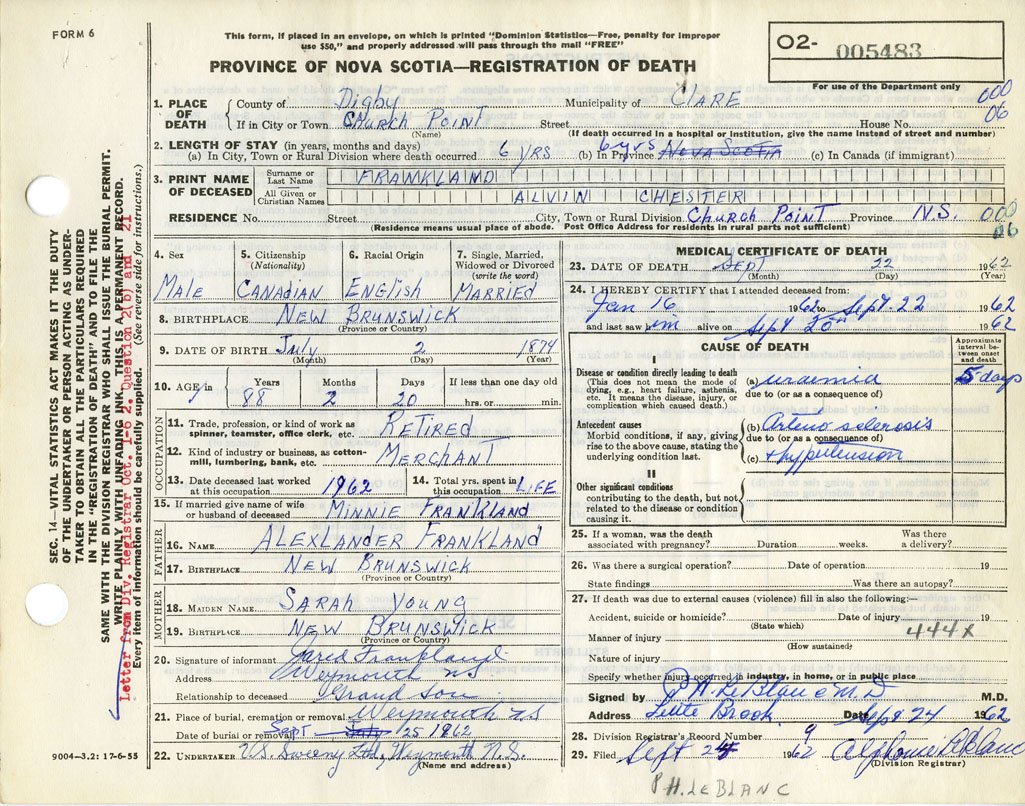 FORM 6
This form, if placed in an envelope, on which is printed "Dominion Statistics—Free, penalty for improper
use $50," and properly addressed will pass through the mail "FREE"
O2- 005483
For use of the Department only
PROVINCE OF NOVA SCOTIA—REGISTRATION OF DEATH
000
06
1. PLACE OF DEATH { County of Digby Municipality of CLARE
If in City or Town CHURCH POINT Street House No.
(Name) (If death occurred in a hospital or institution, give the name instead of street and number)
2. LENGTH OF STAY (in years, months and days)
(a) In City, Town or Rural Division where death occurred 6 YRS (b) In Province 6 yrs NOVA SCOTIA (c) In Canada (if immigrant)
3. PRINT NAME OF DECEASED { Surname or Last Name FRANKLAND
All Given or Christian Names ALVIN CHESTER
RESIDENCE No. Street City, Town or Rural Division CHURCH POINT Province N.S. 000
06
(Residence means usual place of abode. Post Office Address for residents in rural parts not sufficient)
4. Sex MALE
5. Citizenship (Nationality) CANADIAN
6. Racial Origin ENGLISH
7. Single, Married, Widowed or Divorced (write the word) MARRIED
8. BIRTHPLACE NEW BRUNSWICK
(Province or Country)
9. DATE OF BIRTH July 2 1874
(Month) (Day) (Year)
10. AGE in Years 88 Months 2 Days 20 If less than one day old hrs. or min.
OCCUPATION
11. Trade, profession, or kind of work as spinner, teamster, office clerk, etc. RETIRED
12. Kind of industry or business, as cotton-mill, lumbering, bank, etc. MERCHANT
13. Date deceased last worked at this occupation 1962
14. Total yrs. spent in this occupation LIFE
15. If married give name of wife or husband of deceased MINNIE FRANKLAND
FATHER
16. NAME ALEXLANDER FRANKLAND
17. BIRTHPLACE NEW BRUNSWICK
(Province or Country)
MOTHER
18. MAIDEN NAME SARAH YOUNG
19. BIRTHPLACE NEW BRUNSWICK
(Province or Country)
20. Signature of informant Jared Frankland
Address Weymouth NS
Relationship to deceased Grand Son
21. Place of burial, cremation or removal Weymouth NS
Date of burial or removal Sept July 25 1962
22. UNDERTAKER Sweeny Weymouth N.S.
(Name and address)
MEDICAL CERTIFICATE OF DEATH
23. DATE OF DEATH Sept 22 1962
(Month) (Day) (Year)
24. I HEREBY CERTIFY that I attended deceased from:
Jan 16 1962 to Sept. 22 1962
and last saw him alive on Sept 20th 1962
CAUSE OF DEATH
Approximate interval between onset and death
I
Disease or condition directly leading to death
(This does not mean the mode of dying, e.g., heart failure, asthenia, etc. It means the disease, injury, or complication which caused death.)
(a) uraemia 5 days
due to (or as a consequence of)
Antecedent causes
Morbid conditions, if any, giving rise to the above cause, stating the underlying condition last.
(b) Arterio sclerosis
due to (or as a consequence of)
(c) + hypertension
II
Other significant conditions
contributing to the death, but not related to the disease or condition causing it.
25. If a woman, was the death associated with pregnancy? Duration weeks. Was there a delivery?
26. Was there a surgical operation? Date of operation 19
State findings Was there an autopsy?
27. If death was due to external causes (violence) fill in also the following:—
Accident, suicide or homicide? Date of injury 19
(State which) 444X
Manner of injury
(How sustained)
Nature of injury
Specify whether injury occurred in industry, in home, or in public place
Signed by P H. LeBlanc M.D M.D.
Address Little Brook Date Sept 24 1962
28. Division Registrar's Record Number 9
29. Filed Sept 24 1962 Alphonie
(Division Registrar)
P H. LEBLANC
9004—3.2: 17-6-55
SEC. 14—VITAL STATISTICS ACT MAKES IT THE DUTY
OF THE UNDERTAKER OR PERSON ACTING AS UNDER-
TAKER TO OBTAIN ALL THE PARTICULARS REQUIRED
IN THE "REGISTRATION OF DEATH" AND TO FILE THE
SAME WITH THE DIVISION REGISTRAR WHO SHALL ISSUE THE BURIAL PERMIT.
WRITE PLAINLY WITH UNFADING INK. THIS IS A PERMANENT RECORD.
Letter from Div. Registrar Oct. 1-62. Question 2(b) and 21
Every item of information should be carefully supplied. (See reverse side for instructions.)